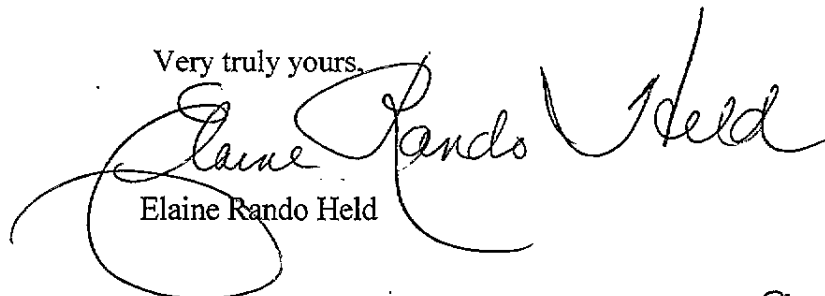 Very truly yours,
Elaine Rando Held
Elaine Rando Held